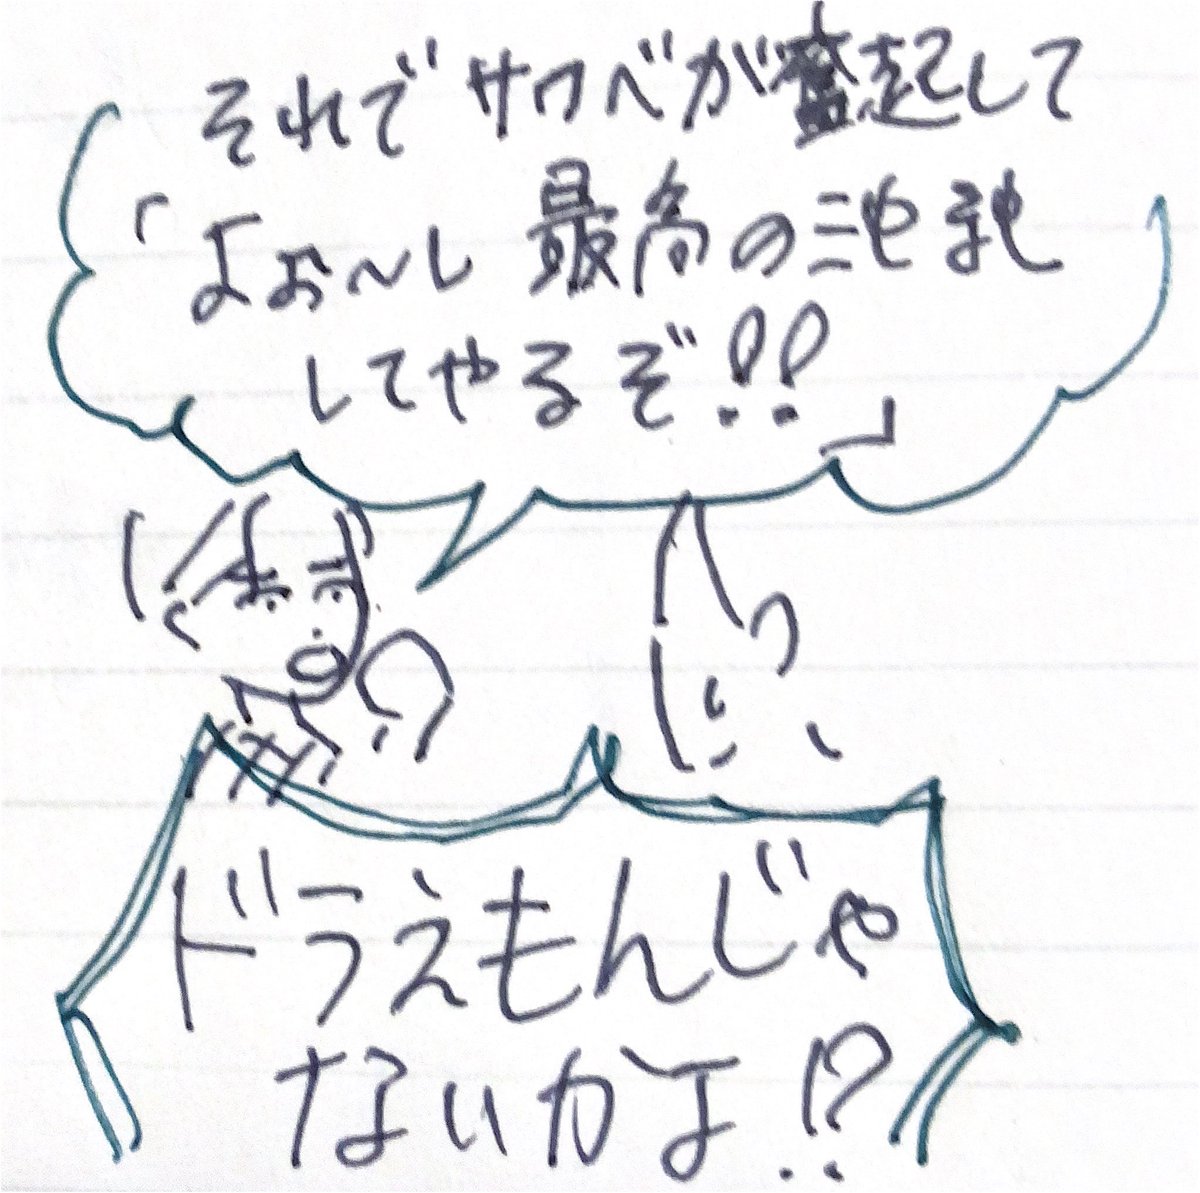 それでサワベが奮起して
「よぉ〜し 最高の三枚まも
してやるぞ!!」
ドラえもんじゃ
ないかよ!?